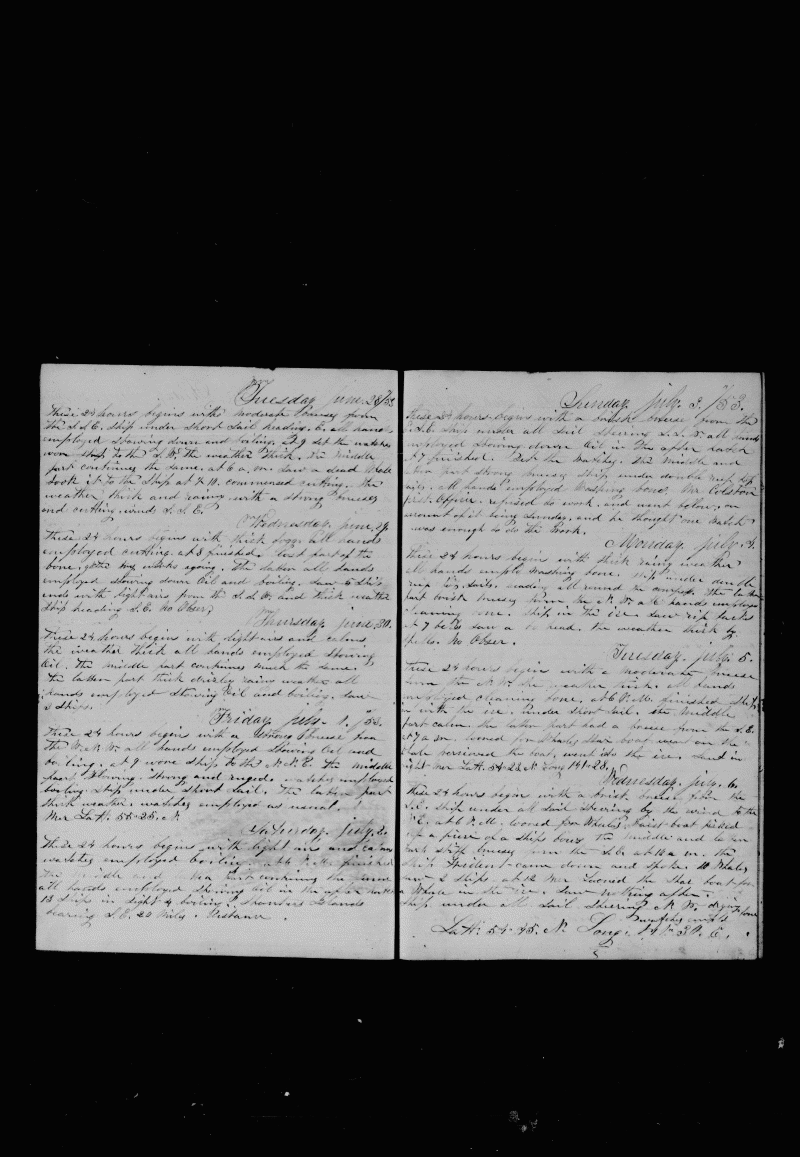 Tuesday June 28/53
These 24 hours begins with moderate breeses from
the S.S.E. ship under short sail heading E. all hands
employed stowing down and boiling. at 9 set the watches
wore ship to the S.W. the weather thick. The Middle
part continues the same. at 6 a.m. saw a dead Whale
took it to the ship at 7. 10. commenced cutting. the
weather thick and rainy. with a strong breeses
and cutting. wind S.S.E.
Wednesday, June, 29.
These 24 hours begins with thick fogg. all hands
employed cutting. at 8 finished. lost part of the
bone, watches again. the latter all hands
employed stowing down Oil and boiling. saw 5 ships
ends with light airs from the S.S.E. and thick weather
ship heading S.E. No Obser.
Thursday, June, 30.
These 24 hours begins with light airs and calms,
the weather thick all hands employed stowing
Oil. the middle part continues much the same.
The latter part thick drizly rains weather all
hands employed stowing Oil and boiling. saw
3 ships.
Friday, July. 1. /53.
These 24 hours begins with a strong breese from
the W.N.W. all hands employed stowing Oil and
boiling. at 9 wore ship to the N.N.E. the middle
part blowing strong and ruged. watches employed
boiling. ship under short sail. the latter part
thick weather. watches employed as usual.
Mer Latt. 55-25. N
Saturday, July, 2.
These 24 hours begins with light air and calms
watches employed boiling. at 4 P.M. finished
the middle and latter part continues the same
all hands employed stowing Oil in the after
13 ships in sight 4 boiling. Shantar Islands
bearing S.E. 20 Miles. Distance.
Sunday, July. 3. /53.
These 24 hours begins with a brisk breese from the
S.E. ship under all sail steering S.S.W. all hands
employed stowing down Oil in the after
at 7 finished. set the Watches. the Middle and
latter part strong breeses ship under double reef top
sails. all hands employed washing bone. Mr. Colston
first officer. refused to work. and went below, on
account of it being Sunday, and he thought one watch
was enough to do the Work.
Monday, July. 4.
These 24 hours begins with thick rainy weather
all hands washing bone. ship under double
reef top sails. heading all round the compass. the latter
part brisk breeses from the N.W. all hands employed
cleaning bone. ship in the ice. saw rip sacks
at 7 bells saw a head. the weather thick
No Obser.
Tuesday. July. 5.
These 24 hours begin with a moderate breese
from the N.W. the weather thick. all hands
employed cleaning bone. at 6 P.M. finished ship
in with the ice. under short sail. the Middle
part calm. the latter part had a breese from the S.E.
at 7 a.m. lowed for Whales. boat went on the
Whale persieved the boat. went into the ice. land in
sight. Mer Latt. 54-23. N Long 141-28.
Wednesday, July. 6.
These 24 hours begins with a brisk breese from the
S.E. ship under all sail steering by the wind to the
E. at 6 P.M. lowed for Whales. boat picked
up a piece of a ships bows the middle and latter
part brisk breeses from the S.E. at 10 a.m. the
ship Trident came down and spoke. 10 Whales
saw 2 ships at 12 Mer lowed the Star. boat for
a Whale in the ice. saw nothing after.
ship under all sail steering N.W. drying bone
watches empl'd
Latt. 54-45. N. Long. 141-38. E.